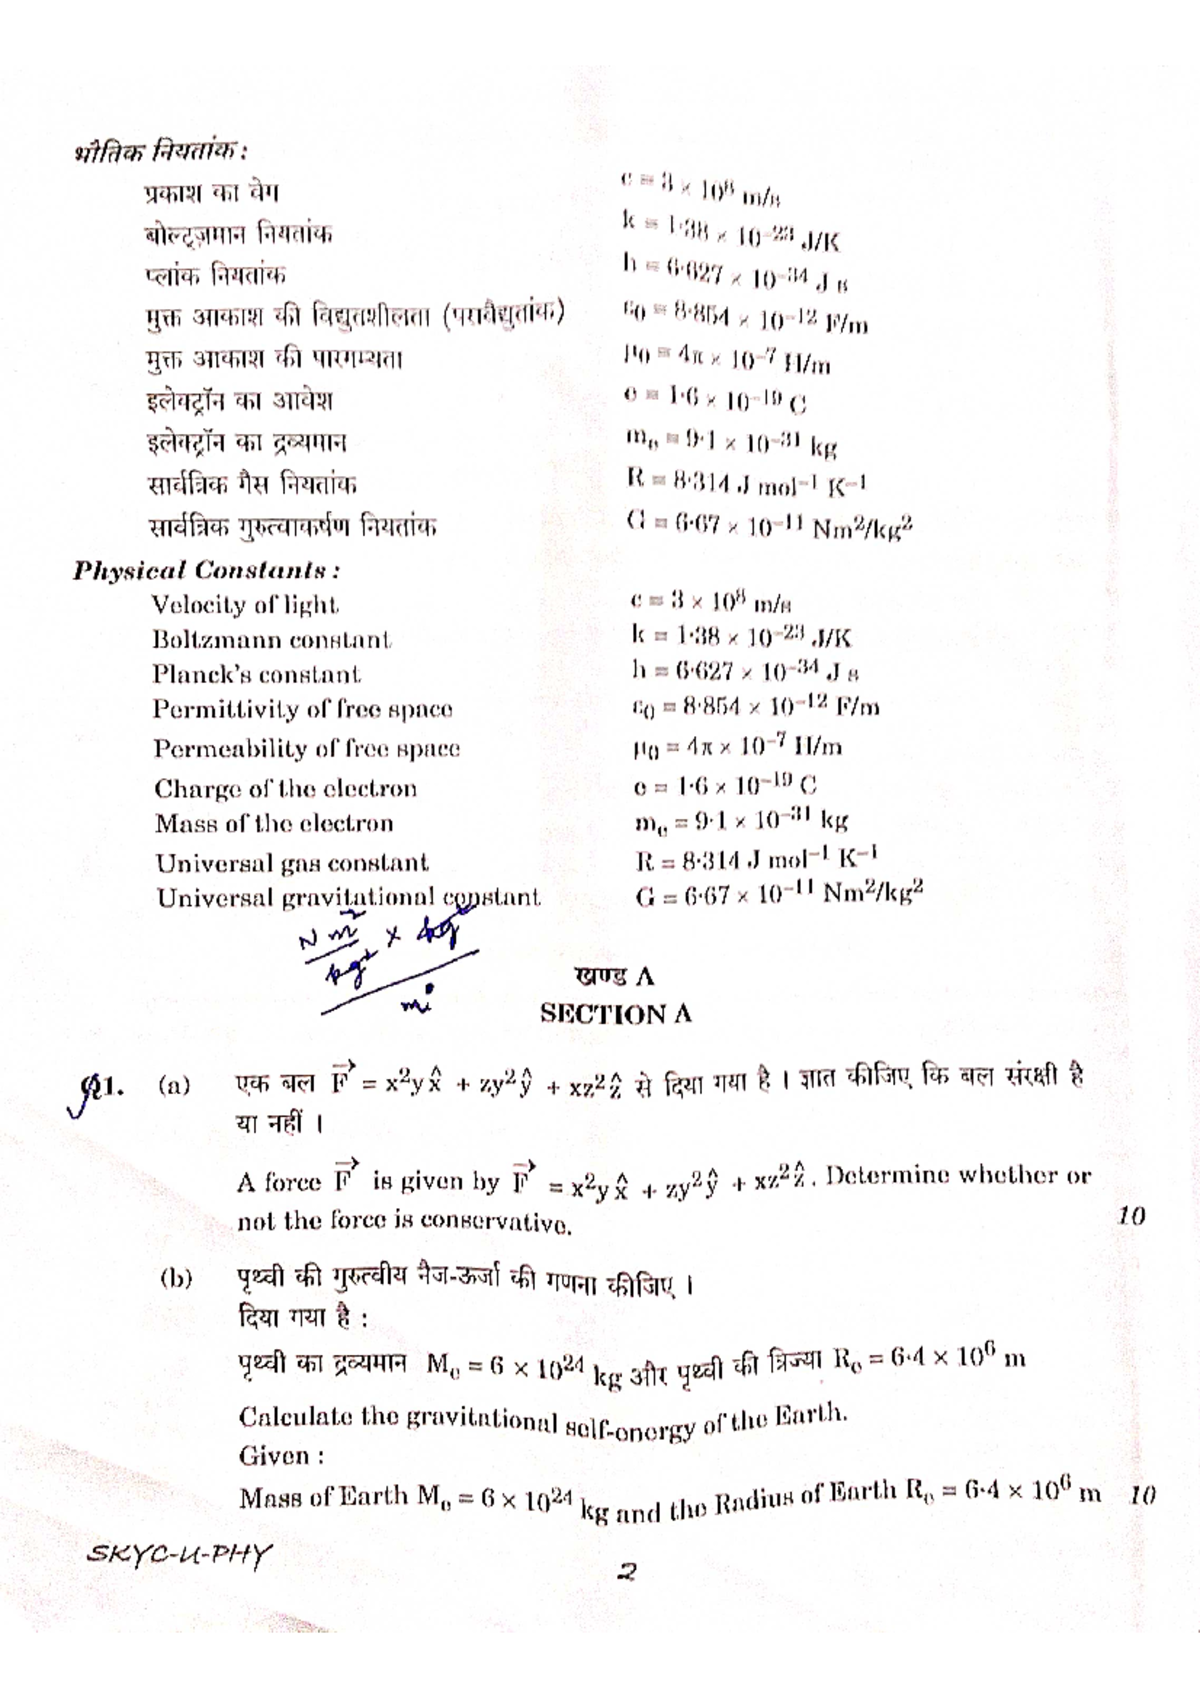 भौतिक नियतांक :
प्रकाश का वेग c = 3 × 10⁸ m/s
बोल्ट्ज़मान नियतांक k = 1·38 × 10⁻²³ J/K
प्लांक नियतांक h = 6·627 × 10⁻³⁴ J s
मुक्त आकाश की विद्युतशीलता (परावैद्युतांक) ε₀ = 8·854 × 10⁻¹² F/m
मुक्त आकाश की पारगम्यता μ₀ = 4π × 10⁻⁷ H/m
इलेक्ट्रॉन का आवेश e = 1·6 × 10⁻¹⁹ C
इलेक्ट्रॉन का द्रव्यमान mₑ = 9·1 × 10⁻³¹ kg
सार्वत्रिक गैस नियतांक R = 8·314 J mol⁻¹ K⁻¹
सार्वत्रिक गुरुत्वाकर्षण नियतांक G = 6·67 × 10⁻¹¹ Nm²/kg²
Physical Constants :
Velocity of light c = 3 × 10⁸ m/s
Boltzmann constant k = 1·38 × 10⁻²³ J/K
Planck's constant h = 6·627 × 10⁻³⁴ J s
Permittivity of free space ε₀ = 8·854 × 10⁻¹² F/m
Permeability of free space μ₀ = 4π × 10⁻⁷ H/m
Charge of the electron e = 1·6 × 10⁻¹⁹ C
Mass of the electron mₑ = 9·1 × 10⁻³¹ kg
Universal gas constant R = 8·314 J mol⁻¹ K⁻¹
Universal gravitational constant G = 6·67 × 10⁻¹¹ Nm²/kg²
N m² × kg²
kg²
m
खण्ड A
SECTION A
Q1. (a) एक बल F⃗ = x²y x̂ + zy² ŷ + xz² ẑ से दिया गया है । ज्ञात कीजिए कि बल संरक्षी है
या नहीं ।
A force F⃗ is given by F⃗ = x²y x̂ + zy² ŷ + xz² ẑ. Determine whether or
not the force is conservative. 10
(b) पृथ्वी की गुरुत्वीय नैज-ऊर्जा की गणना कीजिए ।
दिया गया है :
पृथ्वी का द्रव्यमान Mₑ = 6 × 10²⁴ kg और पृथ्वी की त्रिज्या Rₑ = 6·4 × 10⁶ m
Calculate the gravitational self-energy of the Earth.
Given :
Mass of Earth Mₑ = 6 × 10²⁴ kg and the Radius of Earth Rₑ = 6·4 × 10⁶ m 10
SKYC-U-PHY
2